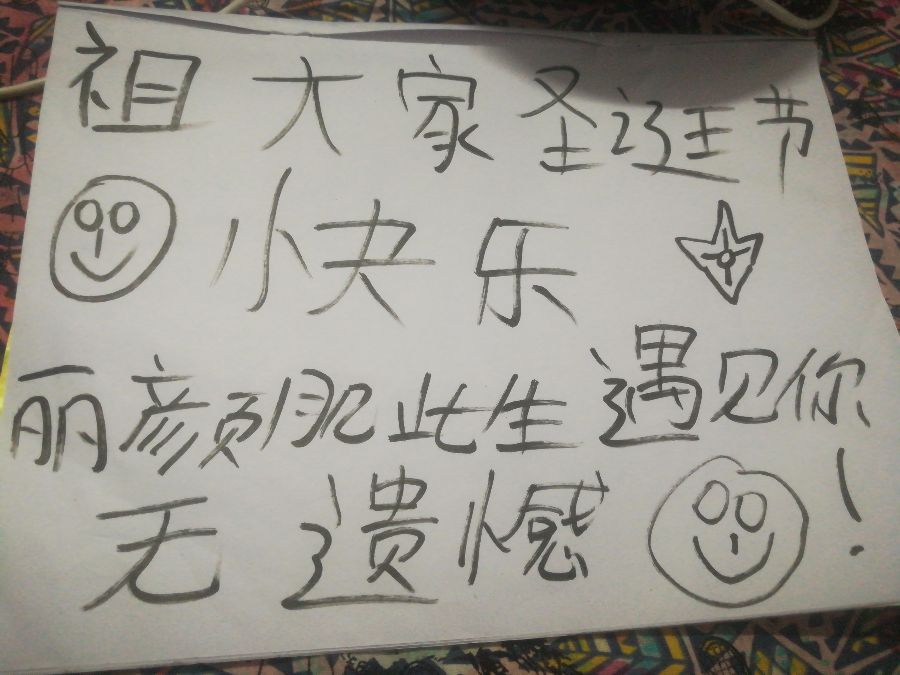 祖大家圣诞节
快乐
丽颜肌此生遇见你
无遗憾！